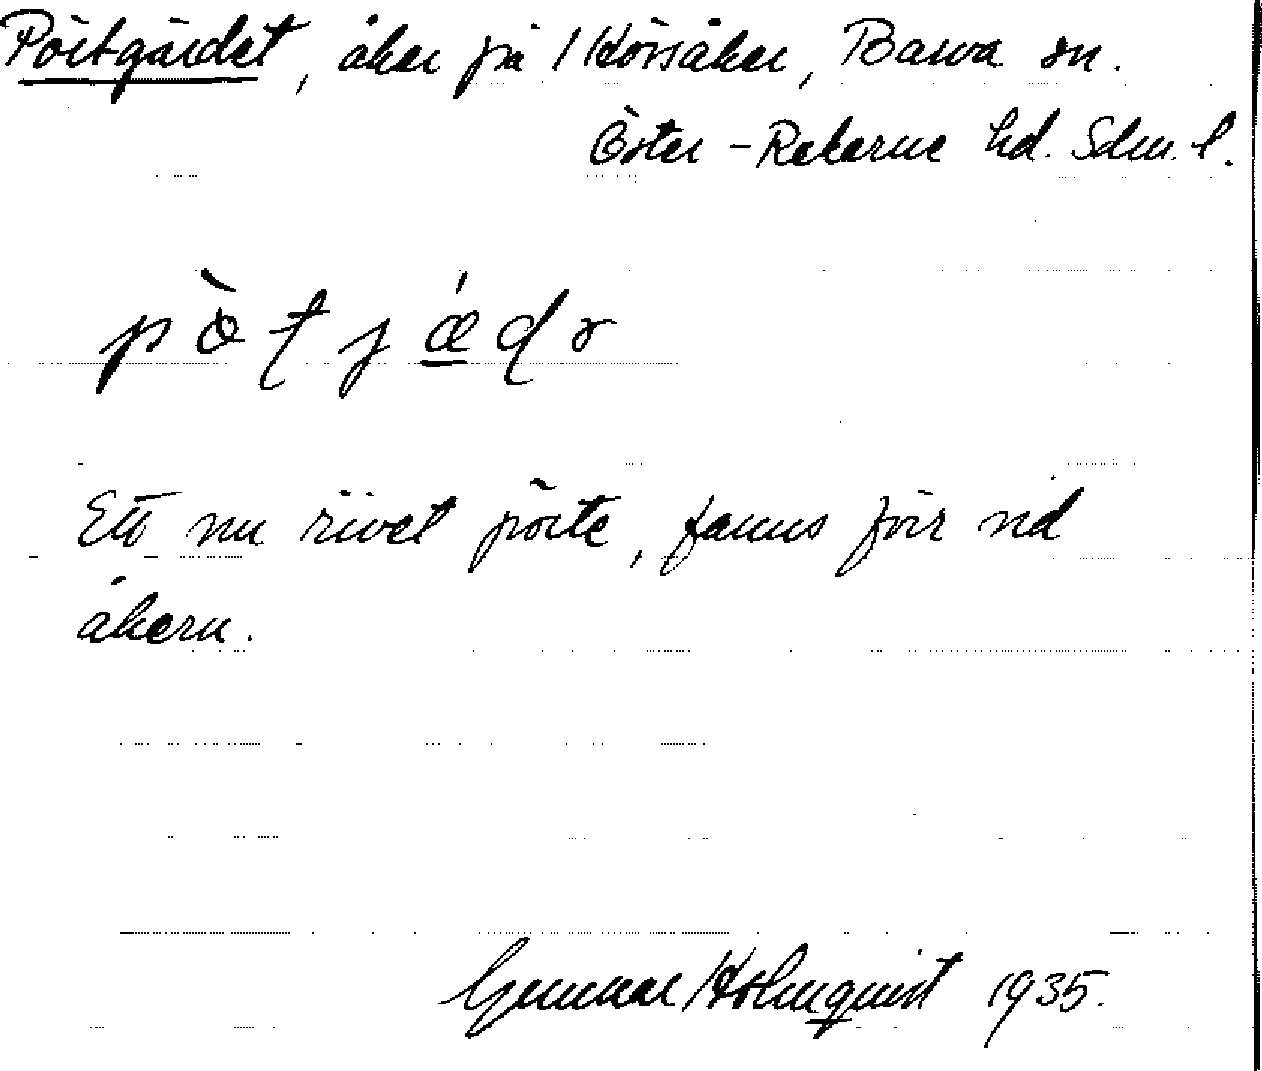 Pörtgärdet, åker på Körsåker, Barva sn.
Öster-Rekarne hd. Sdm. l.
pö̀t jǽdɘ
Ett nu rivet pörte, fanns förr vid
åkern.
Gunnar Holmquist 1935.